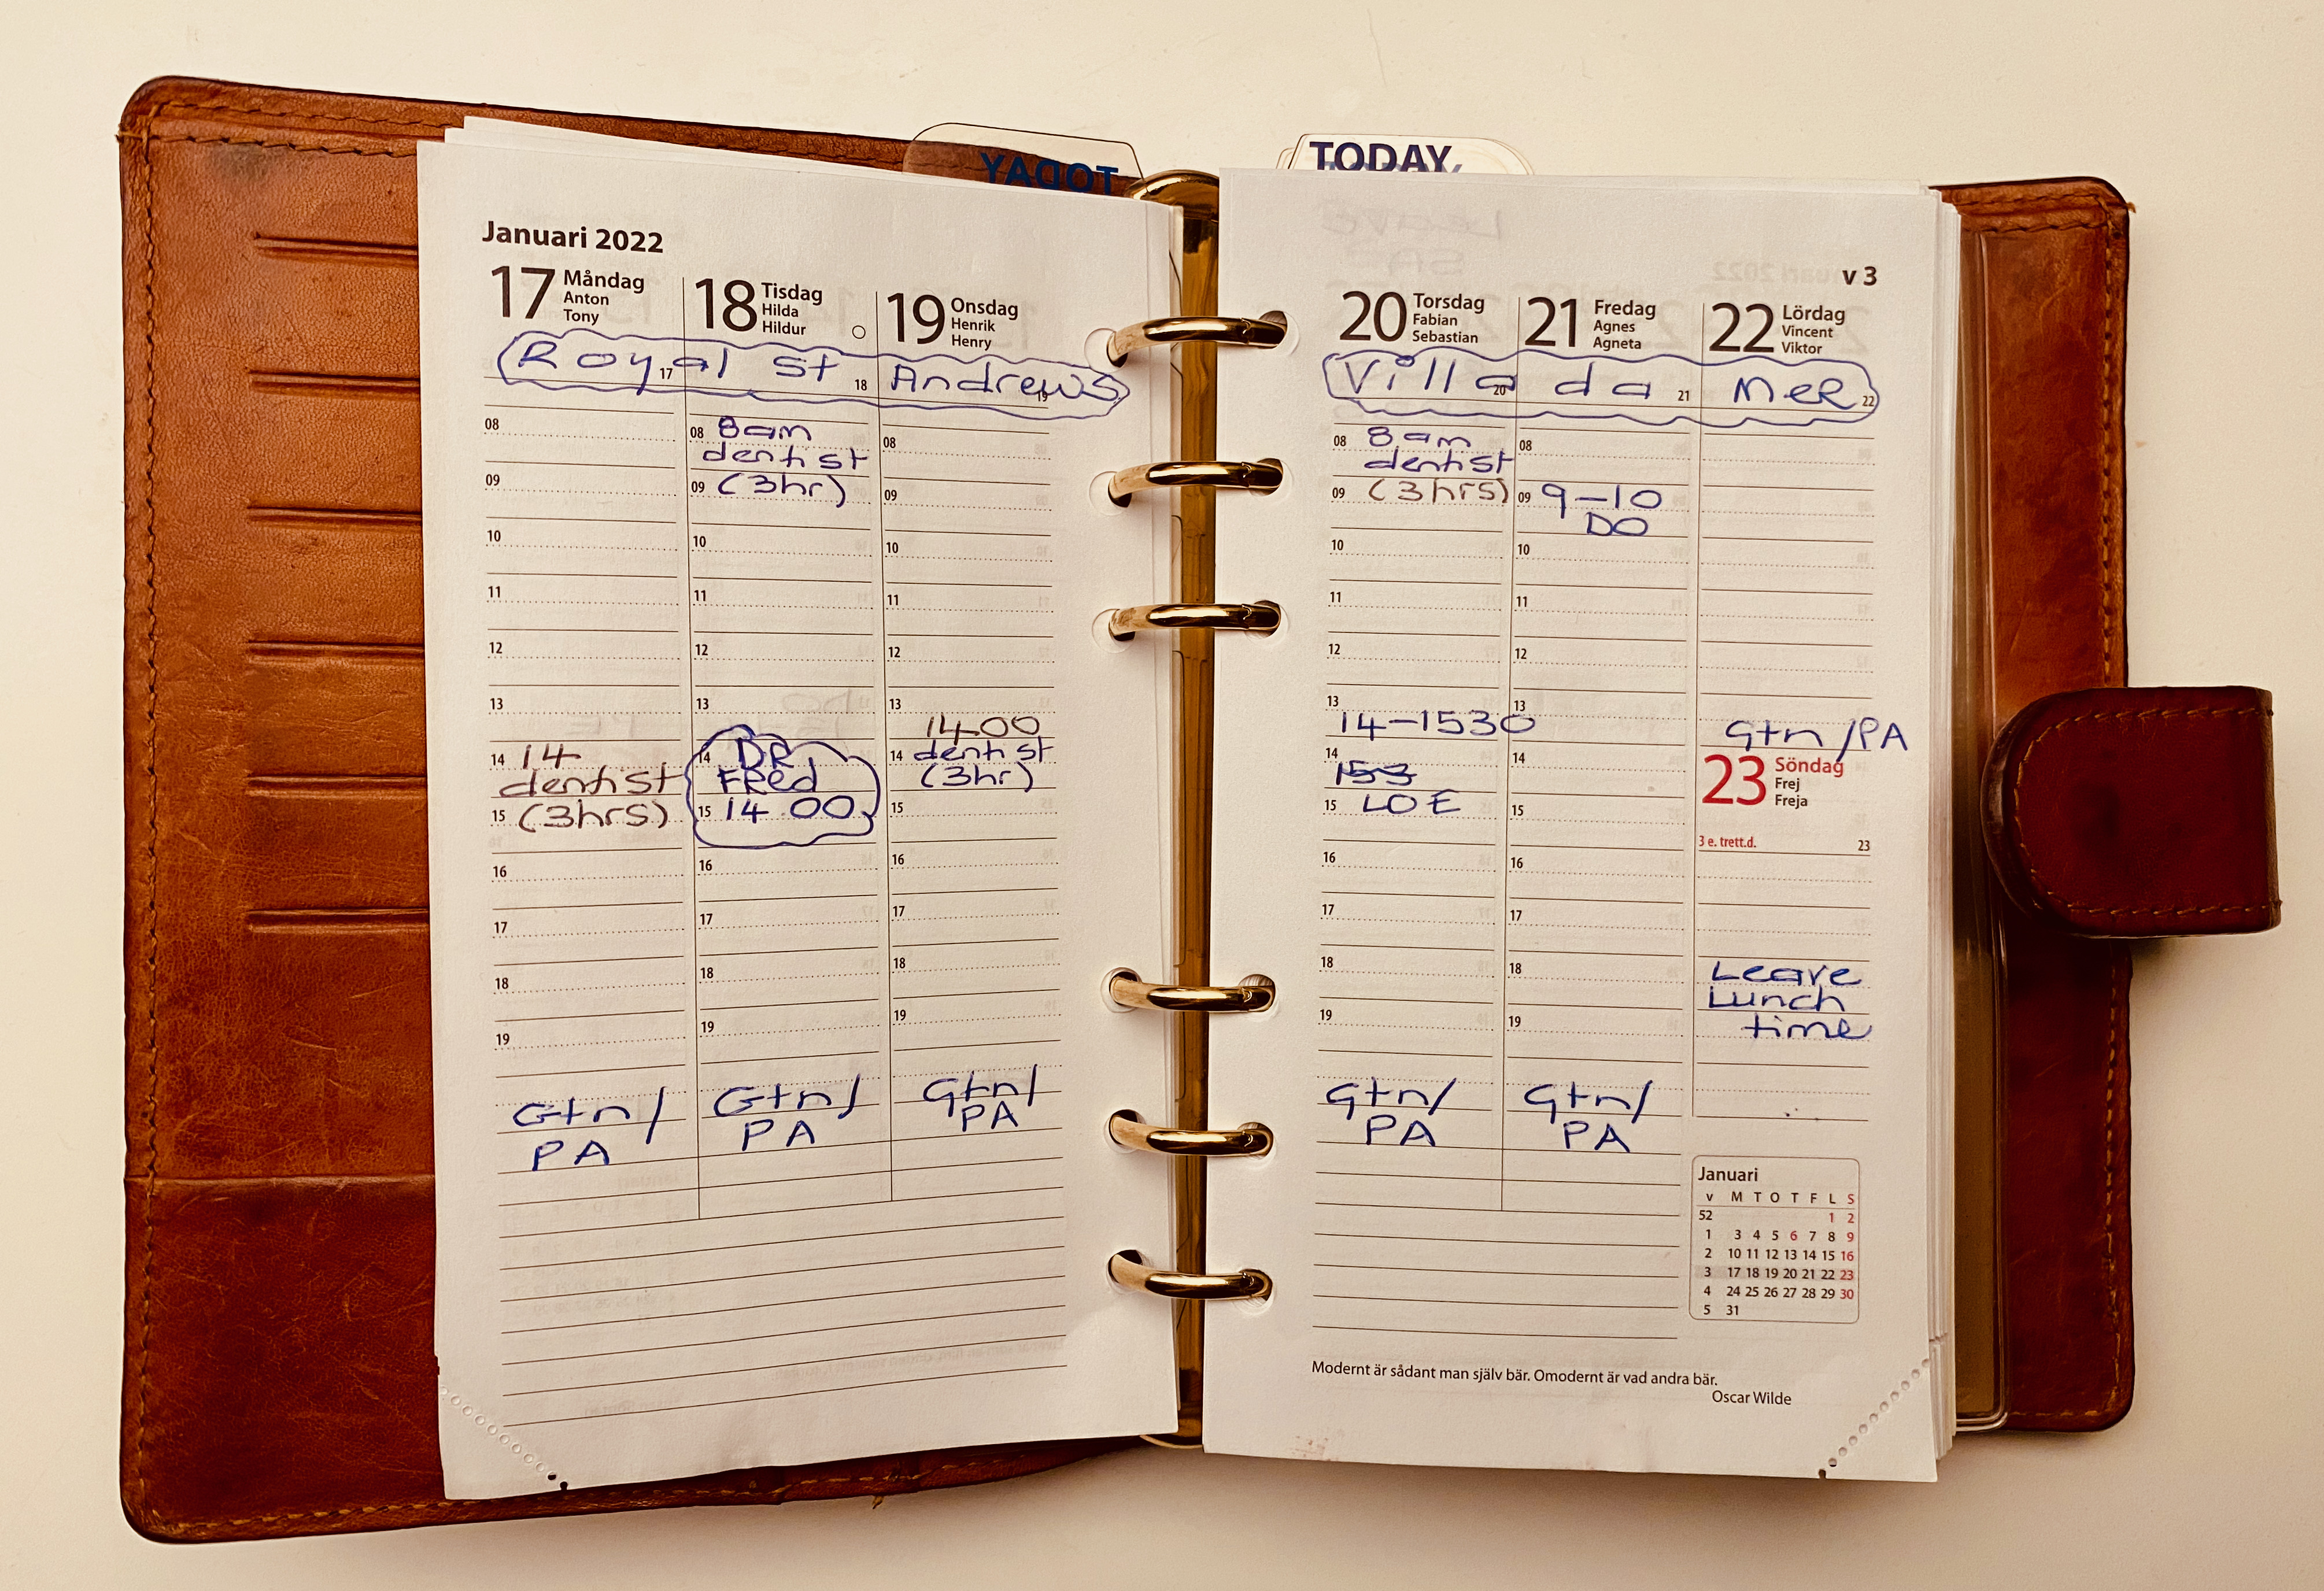 TODAY
TODAY
Januari 2022
17 Måndag
Anton
Tony
18 Tisdag
Hilda
Hildur
19 Onsdag
Henrik
Henry
Royal St Andrews
17
18
19
08
09
10
11
12
13
14 14
dentist
15 (3hrs)
16
17
18
19
Gtn/
PA
08 8am
dentist
09 (3hr)
10
11
12
13
14 DR
FRed
15 14.00
16
17
18
19
Gtn/
PA
08
09
10
11
12
13
1400
14 dentist
(3hr)
15
16
17
18
19
Gtn/
PA
v 3
20 Torsdag
Fabian
Sebastian
21 Fredag
Agnes
Agneta
22 Lördag
Vincent
Viktor
Villa da MeR
20
21
22
08 8am
dentist
09 (3hrs)
10
11
12
13
14-1530
14
153
15 LOE
16
17
18
19
Gtn/
PA
08
09 9-10
DO
10
11
12
13
14
15
16
17
18
19
Gtn/
PA
Gtn/PA
23 Söndag
Frej
Freja
3 e. trett.d. 23
Leave
Lunch
time
Januari
v M T O T F L S
52 1 2
1 3 4 5 6 7 8 9
2 10 11 12 13 14 15 16
3 17 18 19 20 21 22 23
4 24 25 26 27 28 29 30
5 31
Modernt är sådant man själv bär. Omodernt är vad andra bär.
Oscar Wilde